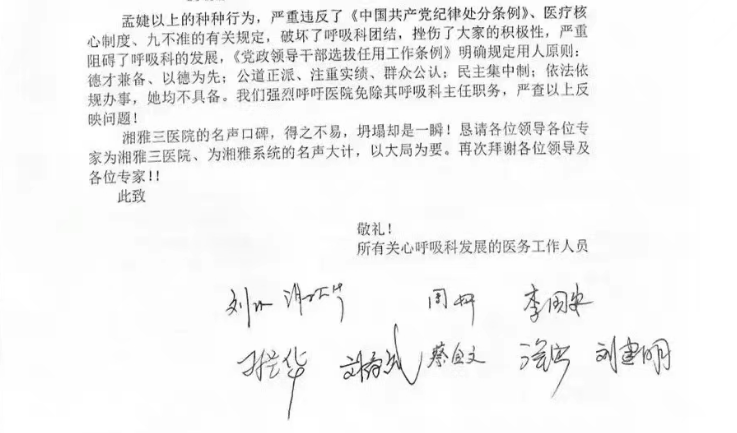 孟婕以上的种种行为，严重违反了《中国共产党纪律处分条例》、医疗核
心制度、九不准的有关规定，破坏了呼吸科团结，挫伤了大家的积极性，严重
阻碍了呼吸科的发展，《党政领导干部选拔任用工作条例》明确规定用人原则：
德才兼备、以德为先；公道正派、注重实绩、群众公认；民主集中制；依法依
规办事，她均不具备。我们强烈呼吁医院免除其呼吸科主任职务，严查以上反
映问题！
湘雅三医院的名声口碑，得之不易，坍塌却是一瞬！恳请各位领导各位专
家为湘雅三医院、为湘雅系统的名声大计，以大局为要。再次拜谢各位领导及
各位专家！！
此致
敬礼！
所有关心呼吸科发展的医务工作人员
周 李国安
蔡 文 刘建明